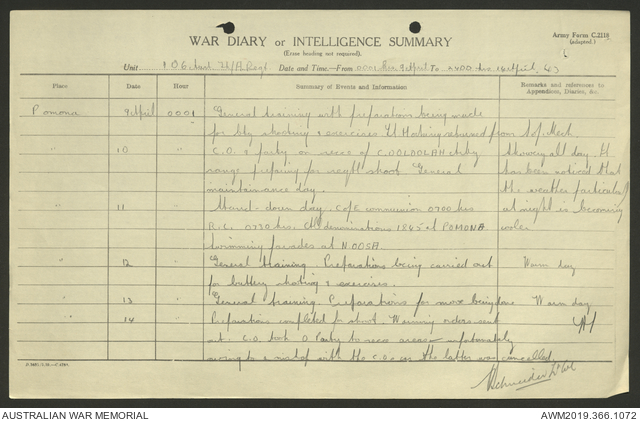 WAR DIARY or INTELLIGENCE SUMMARY
Army Form C.2118
(adapted.)
(Erase heading not required).
Unit 106 Aust Tk/A Regt Date and Time.—From 0001 hrs 9 April To 2400 hrs 14 April. 43
Place Date Hour Summary of Events and Information Remarks and references to Appendices, Diaries, &c.
Pomona 9 April 0001 General training with preparations being made
for bty shooting & exercises. Lt Hocking returned from S of Mech.
" 10 " C.O. & party on recce of COOLOOLAH arty Showery all day. It
range preparing for regtl shoot. General has been noticed that
maintainance day. the weather particularly
" 11 " day. C of E communion 0700 hrs at night is becoming
R.C. 0730 hrs. denominations 1845 at POMONA cooler
Swimming parades at NOOSA.
" 12 " General training. Preparations being carried out Warm day
for battery shooting & exercises.
" 13 " General training. Preparations for move being done Warm day
" 14 Preparations completed for shoot. Warning orders sent
out. C.O. took O Party to recce area unfortunately
owing to a with the C.O's car the latter was cancelled
Schneider Lt Col
AUSTRALIAN WAR MEMORIAL
AWM2019.366.1072